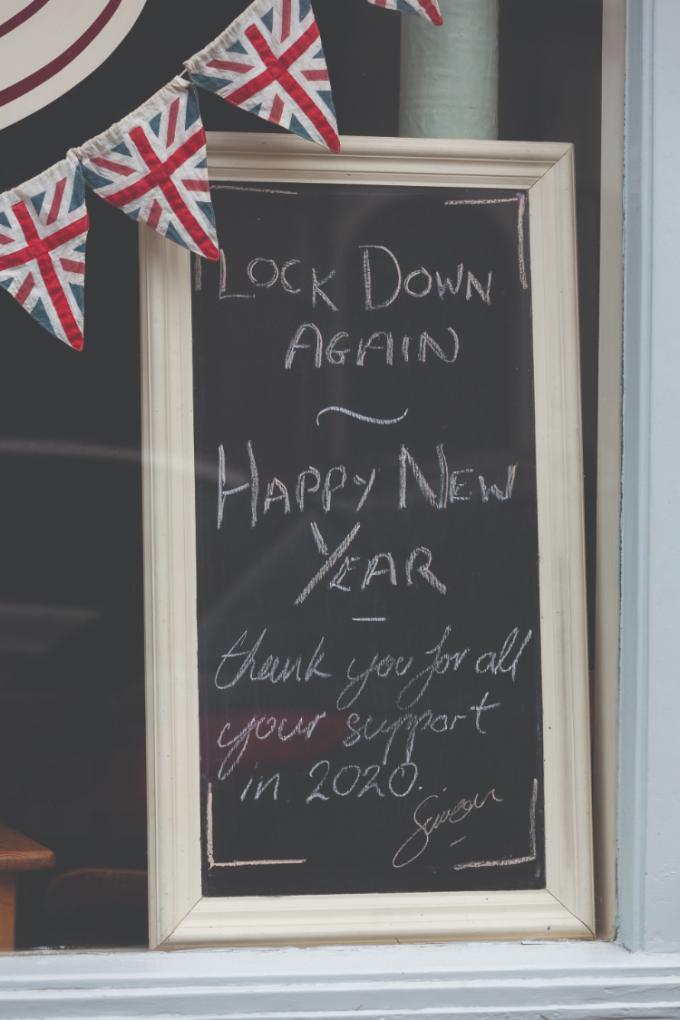 LOCK DOWN
AGAIN
~
HAPPY NEW
YEAR
–
thank you for all
your support
in 2020.